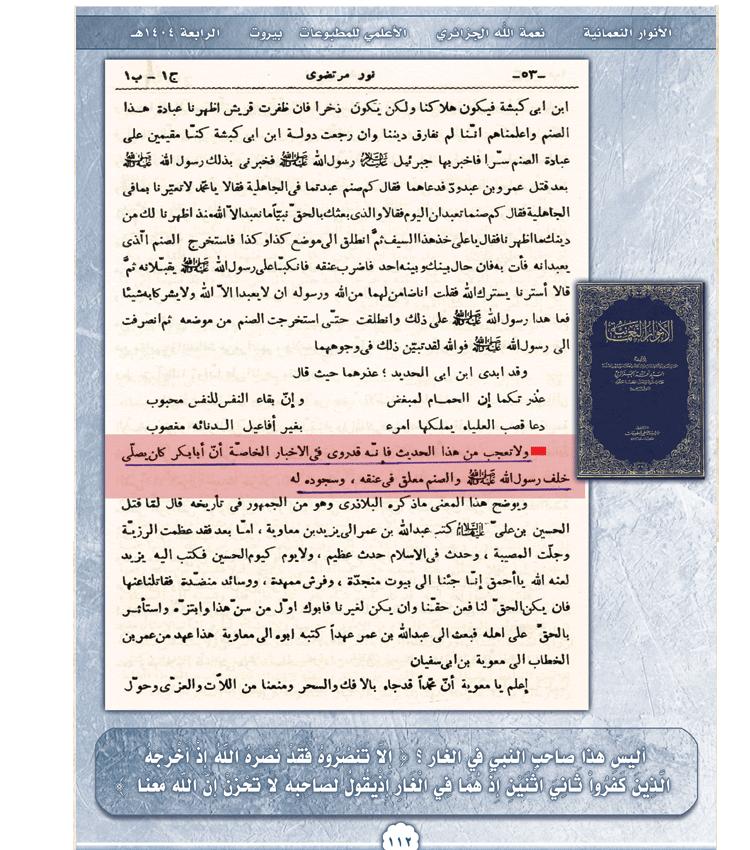 الأنوار النعمانية    نعمة الله الجزائري    الأعلمي للمطبوعات    بيروت    الرابعة ١٤٠٤هـ
ج١ – ب١    نور مرتضوى    –٥٣–
ابن ابى كبشة فيكون هلاكنا ولكن يتكون ذخرا فان ظفرت قريش اظهرنا عبادة هذا
الصنم واعلمناهم انّنا لم نفارق ديننا وان رجعت دولة ابن ابى كبشة كنّا مقيمين على
عبادة الصنم سرّا فاخبر بها جبرئيل رسول الله فخبرنى بذلك رسول الله
بعد قتل عمرو بن عبدودّ فدعاهما فقال كم صنم عبدتما فى الجاهلية فقالا يا محمّد لا تعيّرنا بما فى
الجاهلية فقال كم صنما تعبدان اليوم فقالا والذى بعثك بالحقّ نبيّا ما نعبد الاّ الله منذ اظهرنا لك من
دينك ما اظهرنا فقال يا على خذ هذا السيف ثمّ انطلق الى موضع كذا وكذا فاستخرج الصنم الّذى
يعبدانه فأت به فان حال بينك وبينه احد فاضرب عنقه فانكبّا على رسول الله يقبّلانه ثمّ
قالا أسترنا يسترك الله فقلت انا ضامن لهما من الله ورسوله ان لا يعبدا الاّ الله ولا يشركا به شيئا
فعاهدا رسول الله على ذلك وانطلقت حتّى استخرجت الصنم من موضعه ثم انصرفت
الى رسول الله فوالله لقد تبيّن ذلك فى وجوههما
وقد ابدى ابن ابى الحديد ؛ عذرهما حيث قال
عذر تكما إن الحمام لمبغض    وإنّ بقاء النفس للنفس محبوب
دعا قصب العلياء يملكها امرء    بغير أفاعيل الدنائه مغصوب
ولا تعجب من هذا الحديث فانّه قد روى فى الاخبار الخاصّة أنّ أبابكر كان يصلّى
خلف رسول الله والصنم معلق فى عنقه ، وسجوده له
ويوضح هذا المعنى ما ذكره البلاذرى وهو من الجمهور فى تأريخه قال لمّا قتل
الحسين بن علىّ كتب عبدالله بن عمر الى يزيد بن معاوية ، امّا بعد فقد عظمت الرزيّة
وجلّت المصيبة ، وحدث فى الاسلام حدث عظيم ، ولا يوم كيوم الحسين فكتب اليه يزيد
لعنه الله يا أحمق إنّما جئنا الى بيوت منجدّة ، وفرش ممهدة ، ووسائد منضّدة فقاتلنا عنها
فان يكن الحقّ لنا فعن حقّنا وان يكن لغيرنا فابوك اوّل من سنّ هذا وابتزّه واستأثر
بالحقّ على اهله فبعث الى عبدالله بن عمر عهداً كتبه ابوه الى معاوية هذا عهد من عمر بن
الخطاب الى معوية بن ابى سفيان
إعلم يا معوية أنّ محمّداً قد جاء بالافك والسحر ومنعنا من اللاّت والعزّى وحوّل
الأنوار النعمانية
أليس هذا صاحب النبي في الغار ؟ ﴿ إلا تنصروه فقد نصره الله إذ أخرجه
الّذين كفروا ثاني اثنين إذ هما في الغار إذ يقول لصاحبه لا تحزن إنّ الله معنا ﴾
١١٢